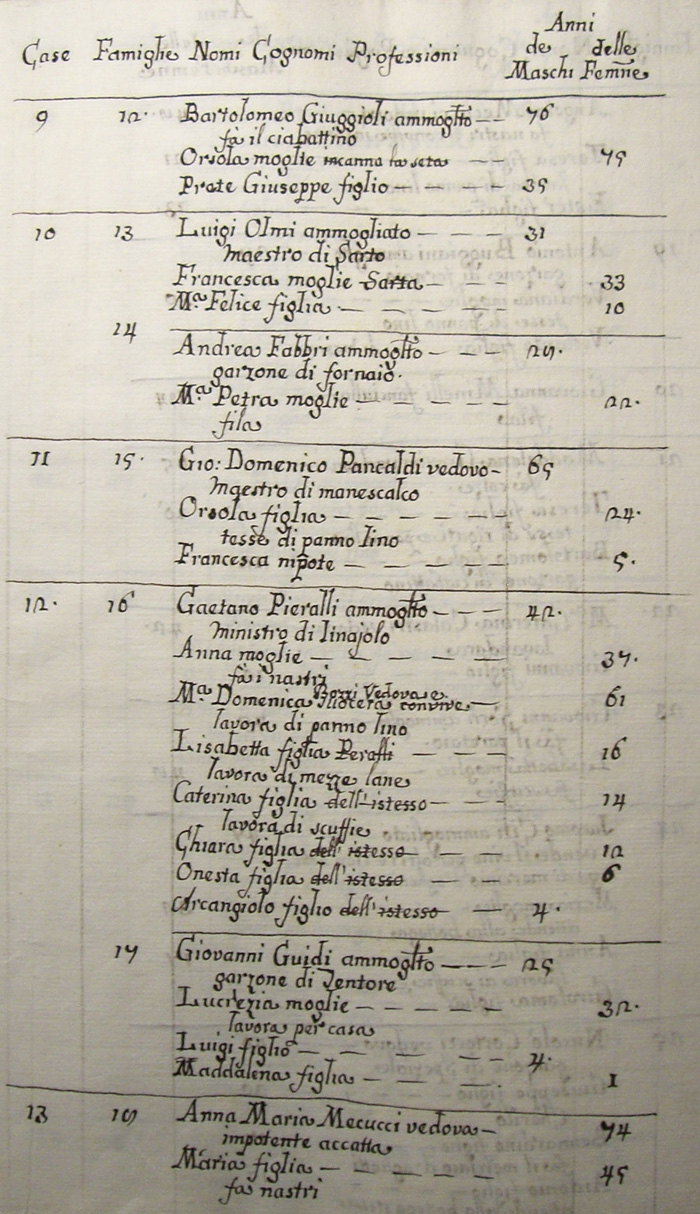 Anni
Case Famiglie Nomi Cognomi Professioni de delle
Maschi Femne
9 12. Bartolomeo Giuggioli ammogtto 76
fà il ciabattino
Orsola moglie incanna la seta 75
Prete Giuseppe figlio 35
10 13 Luigi Olmi ammogliato 31
maestro di Sarto
Francesca moglie Sarta 33
Ma. Felice figlia 10
14 Andrea Fabbri ammogtto 29.
garzone di fornaio.
Ma. Petra moglie 22.
fila
11 15. Gio: Domenico Pancaldi vedovo 65
Maestro di manescalco
Orsola figlia 24.
tesse di panno lino
Francesca nipote 5.
12. 16 Gaetano Pieralli ammogtto 42.
ministro di linajolo
Anna moglie 37.
fà i nastri
Ma. Domenica Vedova e Suocera convive 61
lavora di panno lino
Lisabetta figlia 16
lavora di mezze lane
Caterina figlia dell'istesso 14
lavora di scuffie
Chiara figlia dell'istesso 12
Onesta figlia dell'istesso 6
Arcangiolo figlio dell'istesso 4.
17 Giovanni Guidi ammogtto 25
garzone di Tentore
Lucrezia moglie 32.
lavora per casa
Luigi figlio 4.
Maddalena figlia 1
13 Anna Maria Mecucci vedova 74
impotente accatta
Maria figlia 45
fa nastri